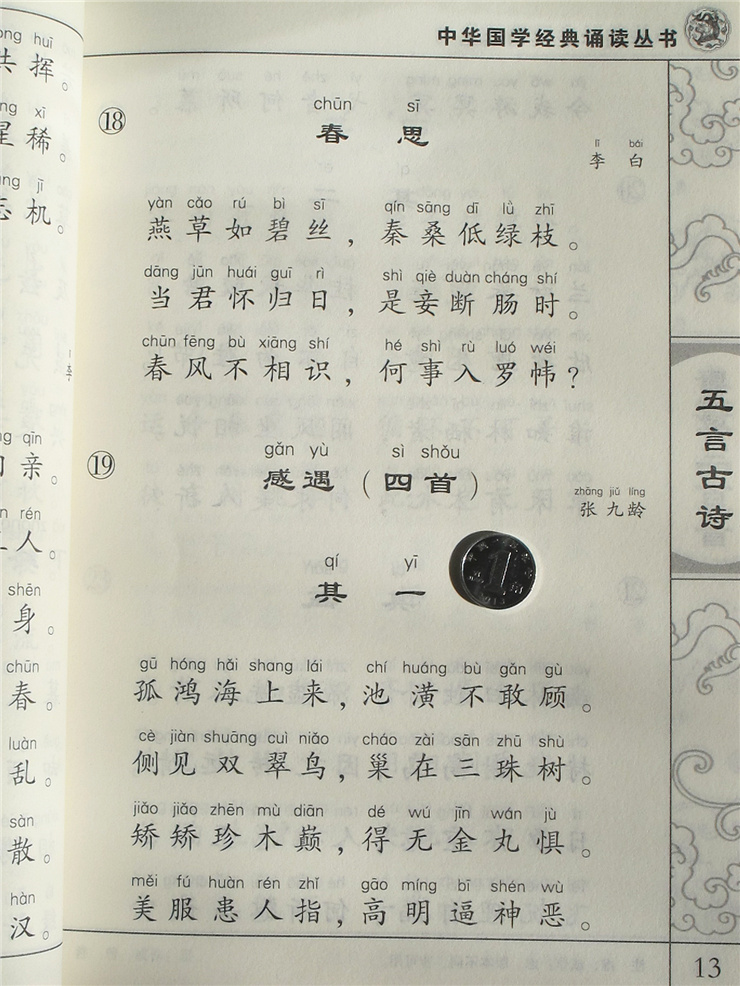 中华国学经典诵读丛书
ong huī
共挥。
ng xī
星稀。
ng jī
忘机。
g qīn
亲。
n rén
人。
shēn
身。
chūn
春。
luàn
乱。
sàn
散。
hàn
汉。
⑱
chūn sī
春思
lǐ bái
李白
yàn cǎo rú bì sī qín sāng dī lǜ zhī
燕草如碧丝，秦桑低绿枝。
dāng jūn huái guī rì shì qiè duàn cháng shí
当君怀归日，是妾断肠时。
chūn fēng bù xiāng shí hé shì rù luó wéi
春风不相识，何事入罗帏？
⑲
gǎn yù sì shǒu
感遇（四首）
zhāng jiǔ líng
张九龄
qí yī
其一
gū hóng hǎi shang lái chí huáng bù gǎn gù
孤鸿海上来，池潢不敢顾。
cè jiàn shuāng cuì niǎo cháo zài sān zhū shù
侧见双翠鸟，巢在三珠树。
jiǎo jiǎo zhēn mù diān dé wú jīn wán jù
矫矫珍木巅，得无金丸惧。
měi fú huàn rén zhǐ gāo míng bī shén wù
美服患人指，高明逼神恶。
五言古诗
13